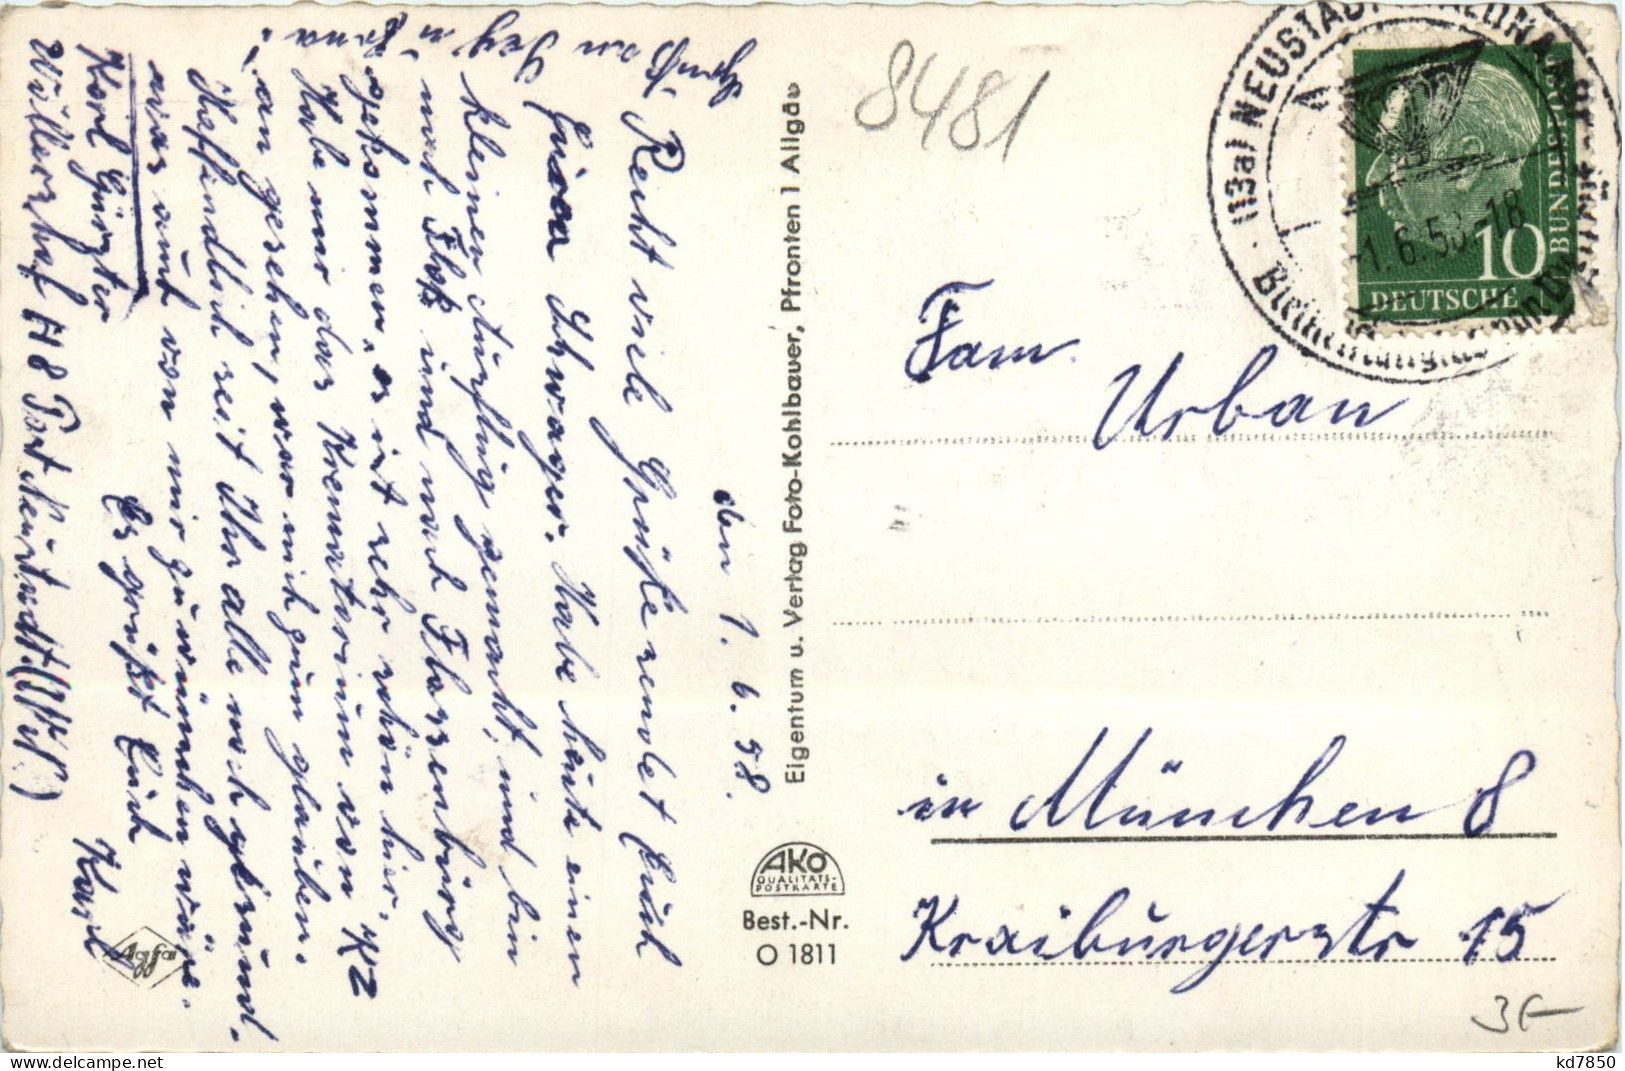 den 1. 6. 58.
Recht viele Grüße sendet Euch
Euer Schwager. Habe heute einen
kleinen Ausflug gemacht, und bin
nach Floß und nach Flossenbürg
gekommen, es ist sehr schön hier.
Habe mir das Krematorium von KZ
an gesehen, war nich zum glauben.
Hoffendlich seit Ihr alle noch gesund.
was auch von mir zu wünschen wäre.
Es grüßt Euch
Karl
Karl
Post Neustadt
Gruß an
8481
Eigentum u. Verlag Foto-Kohlbauer, Pfronten 1 Allgäu
AKO
QUALITÄTS-
POSTKARTE
Best.-Nr.
O 1811
Agfa
(13a) NEUSTADT
1.6.58-18
10
DEUTSCHE
BUNDESPOST
Fam.
Urban
in München 8
Kraiburgerstr 15
3F
kd7850